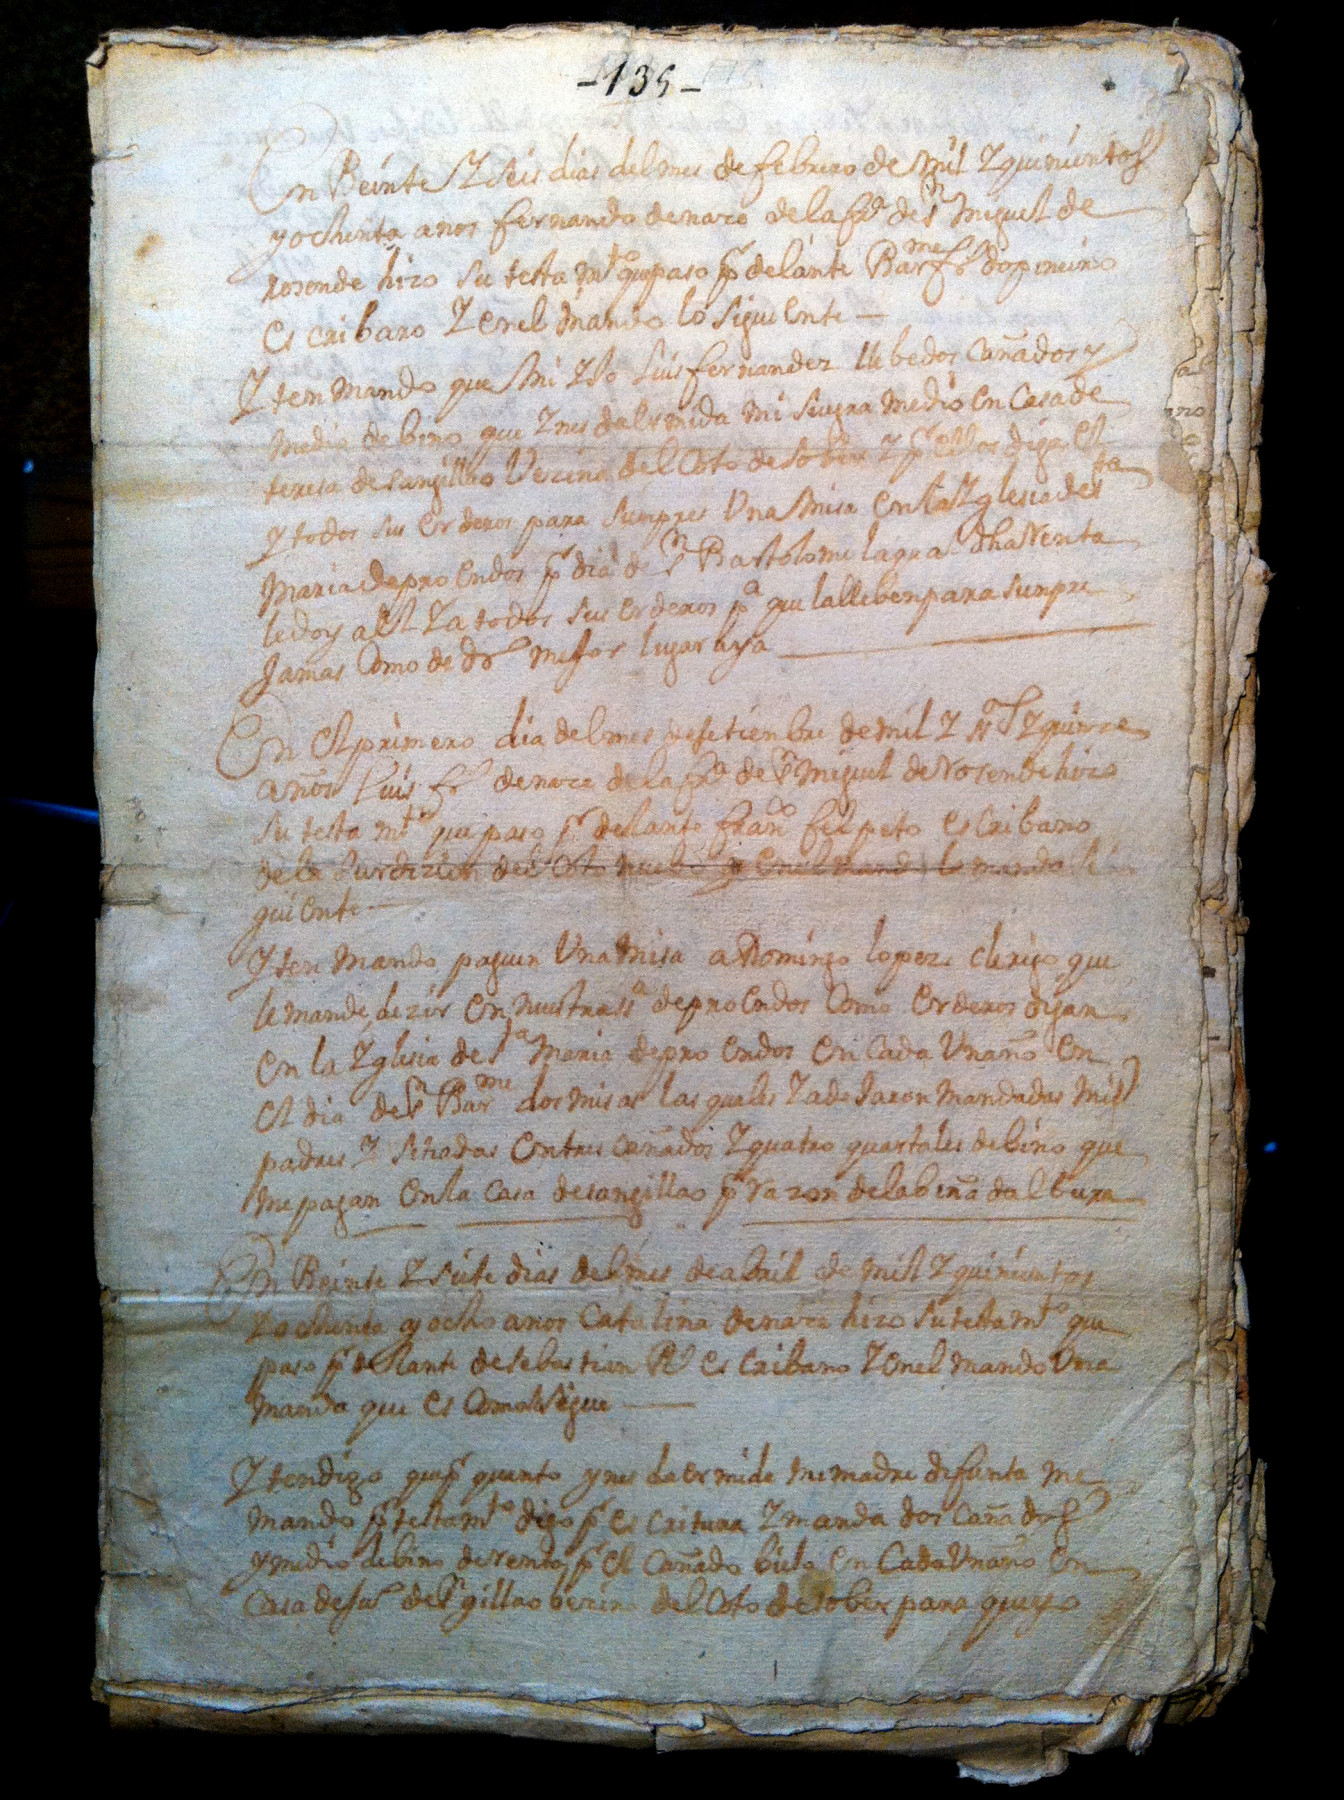 -135-
En Beinte Z seis dias del mes de febrero de mil Z quinientos
y ochenta anos fernando denare dela fra de sn miguel de
rosende hizo su testa mto que paso pr delante Barme fr dopineiro
es cribano Z enel mando lo siguiente
Y ten mando que mi Ijo Luis fernandez llebe dos cañados y
medio de bino que Ynes dalermida mi suegra medio en Casa de
teresa de sangillao Vezina del Coto de sober Z por ellos diga el
y todos sus erderos para siempres Una misa en la Yglesia de sta
Maria de pro endos pr dia de sn Bartolome la qual dha Renta
le doy a el Z a todos sus erderos pa que la lleben para siempre
Jamas Como de dro mejor lugar aya
En El primero dia del mes de setienbre de mil Z y quinze
años Luis fr denare dela fra de sn miguel de Rosende hizo
su testa mto que paso pr delante frano felpeto escribano
dela Jurdizion del Coto nuebo y enel mando lo mando si
guiente
Y ten mando paguen Una misa a Domingo lopez clerigo que
le mande dezir en nuestra sa de pro endos Como erderos digan
en la Yglesia de sta Maria de pro endos en Cada Un año en
el dia de sn Barme dos misas las quales Z a dejaron mandadas mis
padres Z sitiadas en tres cañados Z quatro quartales de bino que
me pagan en la Casa de sangillao pr razon dela biña dalbura
En Beinte Z siete dias del mes de abril de mil Z quinientos
Z ochenta y ocho anos Catalina denare hizo su testa mto que
paso pr delante de sebastian Rs es cribano Z enel mando Una
manda que es Como se sigue
Y ten digo que pr quanto ynes da ermida mi madre difunta me
mando pr testa mto digo pr es critura Z manda dos caña dos
y medio de bino de renta pr el Cañado bielo en Cada Un año en
Casa de Jua de sn gillao bezino del Coto de sober para que yo